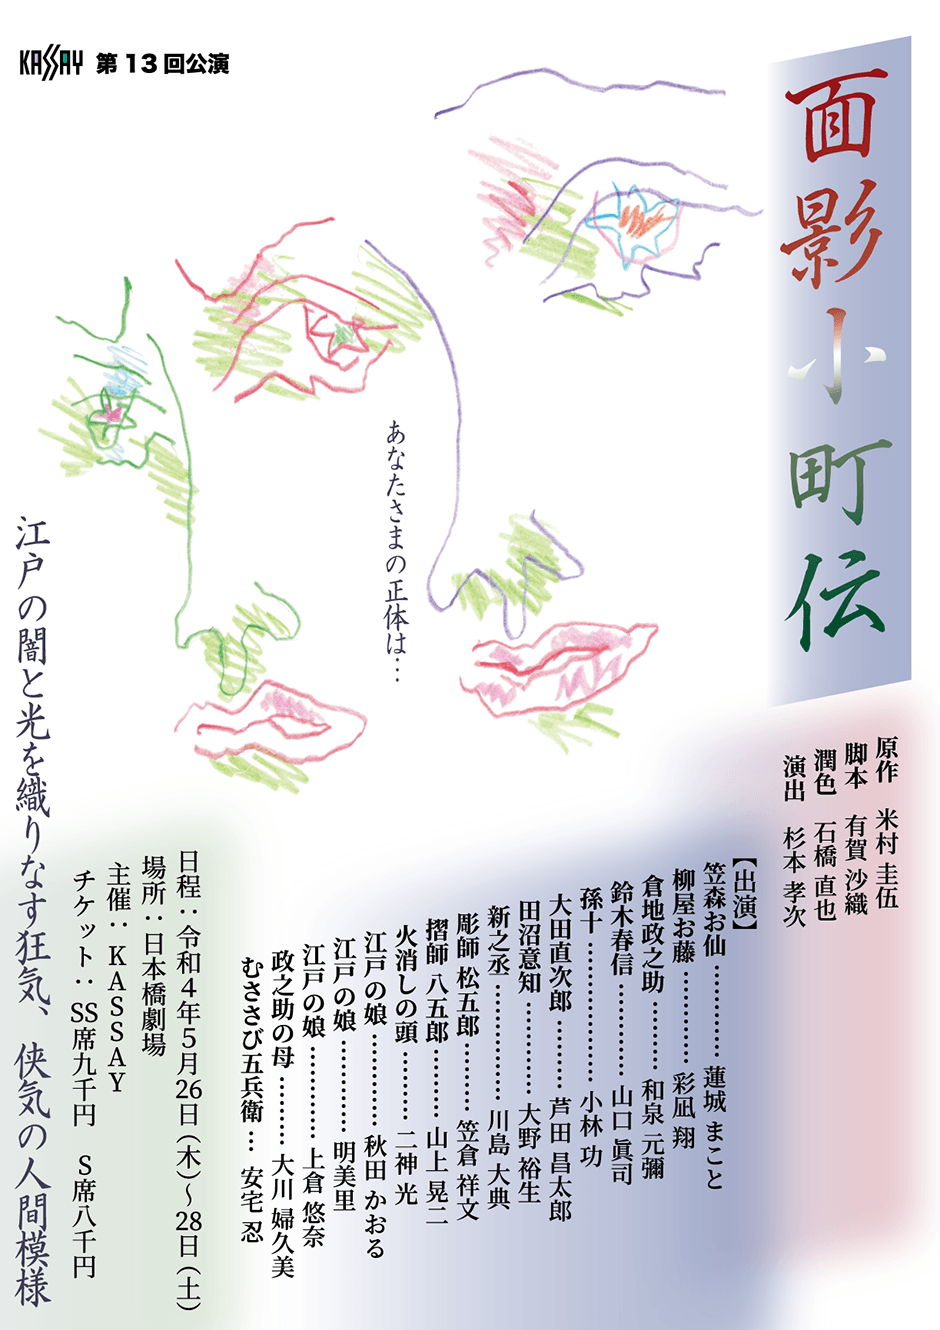 KASSAY 第13回公演
面影小町伝
原作 米村 圭伍
脚本 有賀 沙織
潤色 石橋 直也
演出 杉本 孝次
あなたさまの正体は…
【出演】
笠森お仙………… 蓮城 まこと
柳屋お藤………… 彩凪 翔
倉地政之助……… 和泉 元彌
鈴木春信………… 山口 眞司
孫十……………… 小林 功
大田直次郎……… 芦田 昌太郎
田沼意知………… 大野 裕生
新之丞…………… 川島 大典
彫師 松五郎……… 笠倉 祥文
摺師 八五郎……… 山上 晃二
火消しの頭……… 二神 光
江戸の娘………… 秋田 かおる
江戸の娘………… 明美里
江戸の娘………… 上倉 悠奈
政之助の母……… 大川 婦久美
むささび五兵衛… 安宅 忍
日程：令和4年5月26日(木)～28日(土)
場所：日本橋劇場
主催：KASSAY
チケット：SS席九千円 S席八千円
江戸の闇と光を織りなす狂気、侠気の人間模様